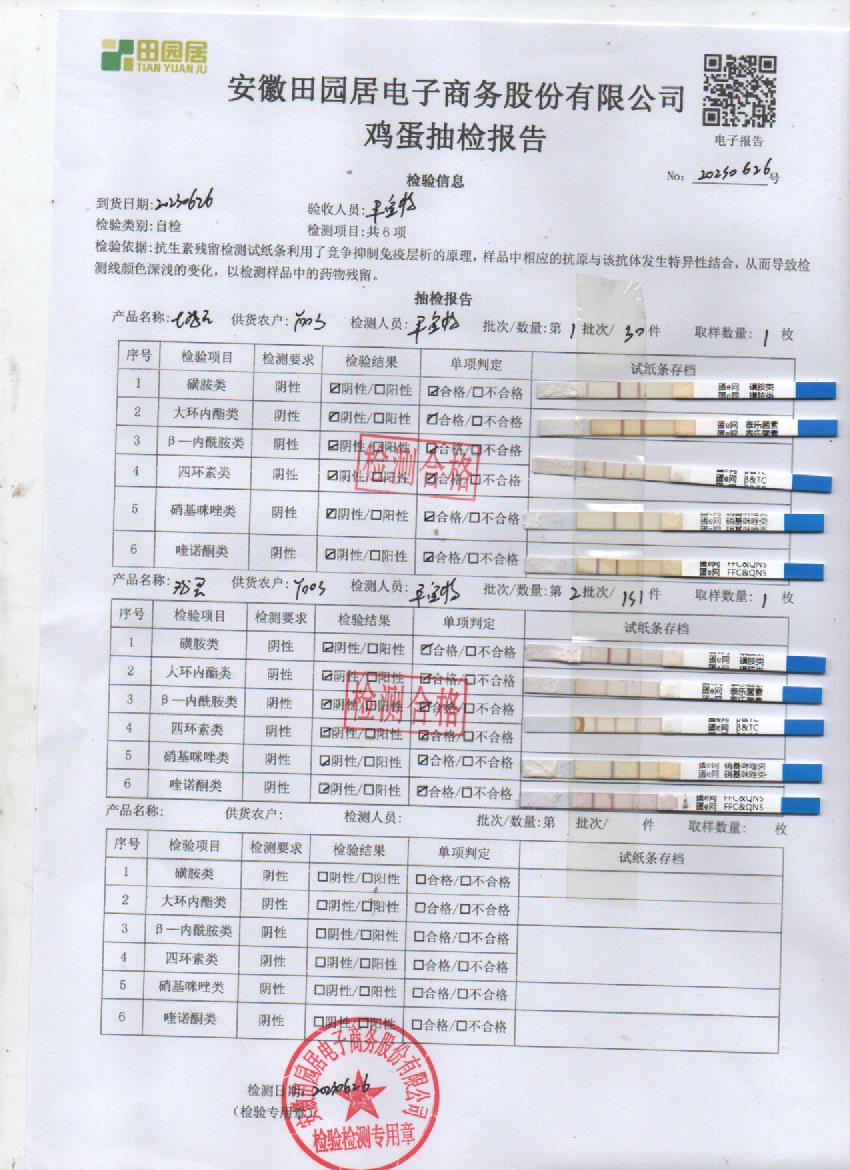 田园居
TIAN YUAN JU
安徽田园居电子商务股份有限公司
鸡蛋抽检报告
电子报告
检验信息
No: 20230626号
到货日期:20230626 验收人员:
检验类别:自检 检测项目:共6项
检验依据:抗生素残留检测试纸条利用了竞争抑制免疫层析的原理,样品中相应的抗原与该抗体发生特异性结合,从而导致检
测线颜色深浅的变化,以检测样品中的药物残留。
抽检报告
产品名称: 供货农户: 检测人员: 批次/数量:第1批次/30件 取样数量:1枚
序号 检验项目 检测要求 检验结果 单项判定 试纸条存档
1 磺胺类 阴性 ☑阴性/☐阳性 ☑合格/☐不合格 蛋e网 磺胺类
2 大环内酯类 阴性 ☑阴性/☐阳性 ☑合格/☐不合格 蛋e网 泰乐菌素
3 β一内酰胺类 阴性 ☑阴性/☐阳性 ☑合格/☐不合格
4 四环素类 阴性 ☑阴性/☐阳性 ☑合格/☐不合格 蛋e网 β&TC
5 硝基咪唑类 阴性 ☑阴性/☐阳性 ☑合格/☐不合格 蛋e网 硝基咪唑类
6 喹诺酮类 阴性 ☑阴性/☐阳性 ☑合格/☐不合格 蛋e网 FFC&QNS
检测合格
产品名称: 供货农户: 检测人员: 批次/数量:第2批次/151件 取样数量:1枚
序号 检验项目 检测要求 检验结果 单项判定 试纸条存档
1 磺胺类 阴性 ☑阴性/☐阳性 ☑合格/☐不合格 蛋e网 磺胺类
2 大环内酯类 阴性 ☑阴性/☐阳性 ☑合格/☐不合格 蛋e网 泰乐菌素
3 β一内酰胺类 阴性 ☑阴性/☐阳性 ☑合格/☐不合格
4 四环素类 阴性 ☑阴性/☐阳性 ☑合格/☐不合格 蛋e网 β&TC
5 硝基咪唑类 阴性 ☑阴性/☐阳性 ☑合格/☐不合格 蛋e网 硝基咪唑类
6 喹诺酮类 阴性 ☑阴性/☐阳性 ☑合格/☐不合格 蛋e网 FFC&QNS
检测合格
产品名称: 供货农户: 检测人员: 批次/数量:第 批次/ 件 取样数量: 枚
序号 检验项目 检测要求 检验结果 单项判定 试纸条存档
1 磺胺类 阴性 ☐阴性/☐阳性 ☐合格/☐不合格
2 大环内酯类 阴性 ☐阴性/☐阳性 ☐合格/☐不合格
3 β一内酰胺类 阴性 ☐阴性/☐阳性 ☐合格/☐不合格
4 四环素类 阴性 ☐阴性/☐阳性 ☐合格/☐不合格
5 硝基咪唑类 阴性 ☐阴性/☐阳性 ☐合格/☐不合格
6 喹诺酮类 阴性 ☐阴性/☐阳性 ☐合格/☐不合格
检测日期:20230626
(检验专用章)
安徽田园居电子商务股份有限公司
检验检测专用章